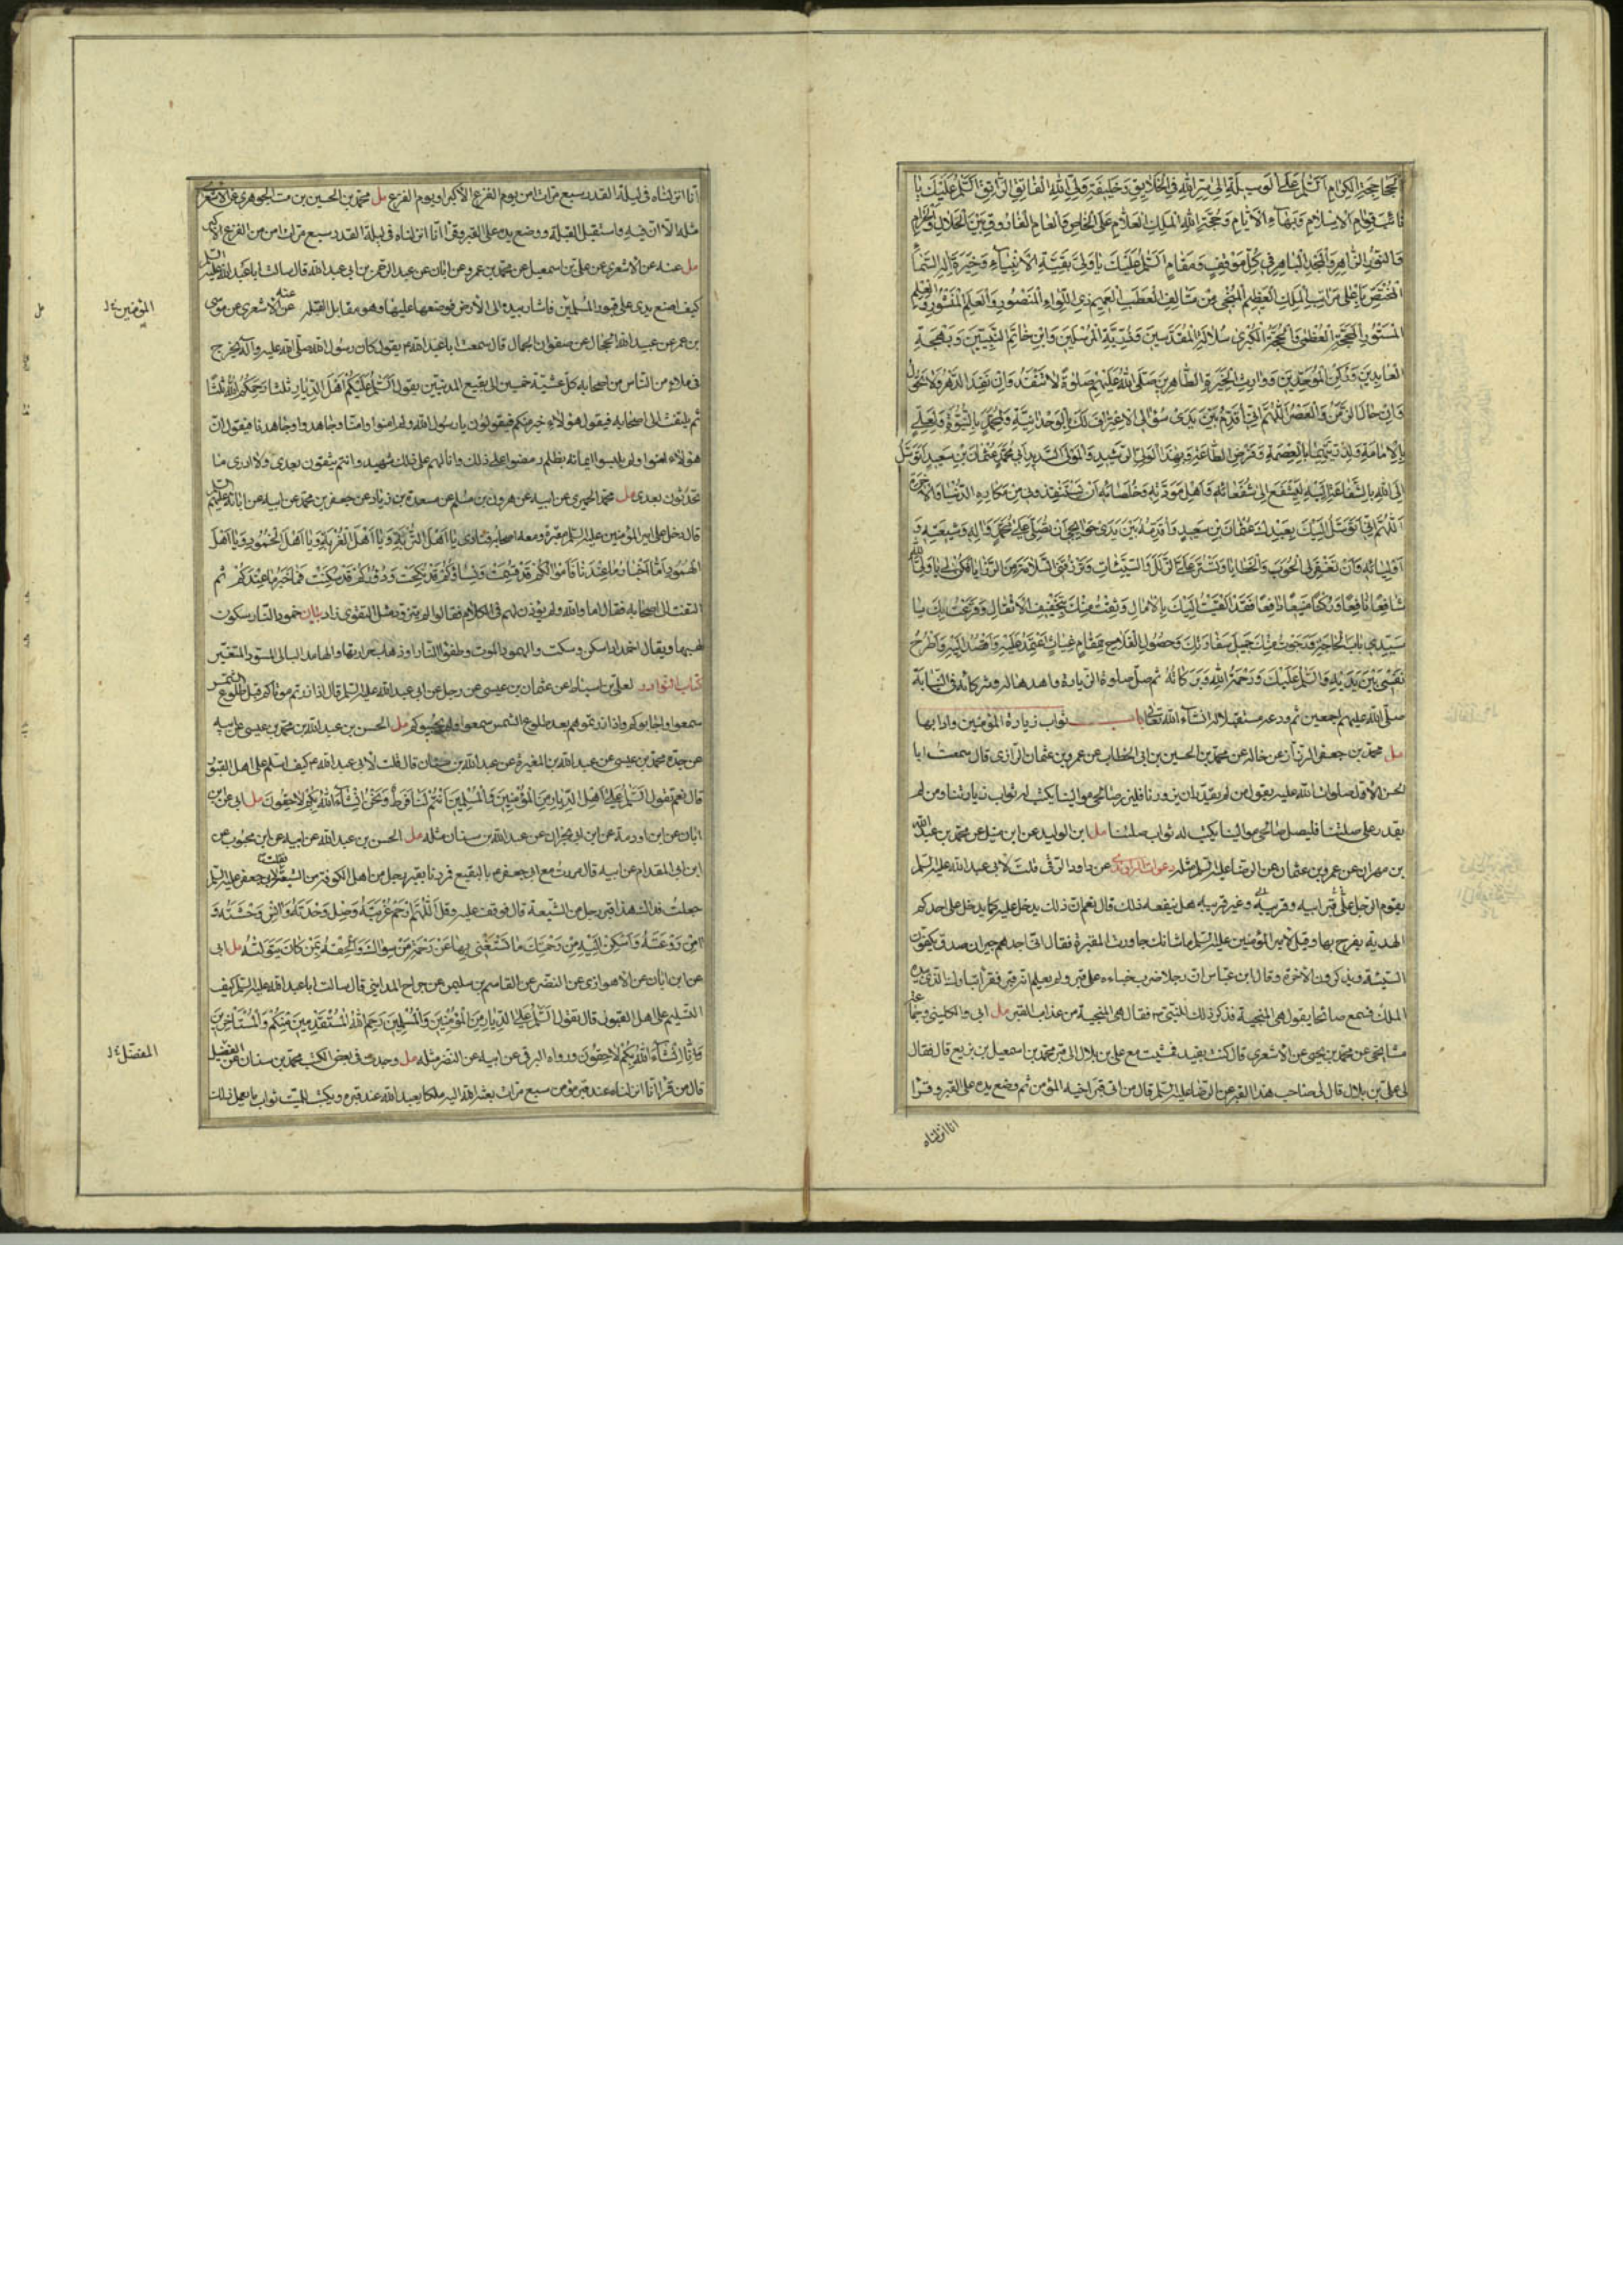 الجحاجحة الكرام السلام على الوسيلة الى سر الله في الخلايق وخليفة ولي الله الفايق الراتق السلام عليك يا
قوام الاسلام وبهاء الايام وحجة الله الملك العلام على الخاص والعام الفاروق بين الحلال والحرام
والنور الزاهر والمجد الباهر في كل موقف ومقام السلام عليك يا ولي بقية الانبياء وخيرة اله السماء
المختص باعلى مراتب الملك العظيم المنجي من متالف العطب العميم ذي اللواء المنصور والعلم المنشور والعلم
المستور المحجة العظمى والحجة الكبرى سلالة المقدسين وذرية المرسلين وابن خاتم النبيين وبهجة
العابدين وركن الموحدين ووارث الخيرة الطاهرين صلى الله عليهم صلوة لا تنفد وان نفد الدهر ولا تحول
وان حال الزمن والعصر اللهم اني اقدم بين يدى سؤالى الاعتراف لك بالوحدانية ولمحمد بالنبوة ولعلي
بالامامة ولذريتهما بالعصمة وفرض الطاعة وبهذا الولي الرشيد والمولى السديد ابي محمد عثمان بن سعيد اتوسل
الى الله بالشفاعة اليه ليشفع الى شفعائه واهل مودته وخلصائه ان يستنقذوني من مكاره الدنيا والاخرة
اللهم اني اتوسل اليك بعبدك عثمان بن سعيد واقدمه بين يدى حوائجي ان تصلي على محمد واله وشيعته و
اوليائه وان تغفر لي الحوب والخطايا وتستر علي الزلل والسيئات وترزقني السلامة من الرزايا فكن لي يا ولي الله
شافعا نافعا وركنا منيعا دافعا فقد القيت اليك بالامال ووثقت منك بتخفيف الاثقال وقرعت بك يا
سيدي باب الحاجة ورجوت منك جميل سفارتك وحصول الفلاح بمقام غياث اعتمد عليه واقصد اليه واطرح
نفسي بين يديه والسلام عليك ورحمة الله وبركاته ثم صل صلوة الزيارة واهدها له ولشركائه في النيابة
صلى الله عليهم اجمعين ثم ودعه مستقبلا له انشاء الله تعالى باب ثواب زيارة المؤمنين وادابها
مل محمد بن جعفر الرزاز عن خاله عن محمد بن الحسين بن ابي الخطاب عن عمرو بن عثمان الرازي قال سمعت ابا
الحسن الاول صلوات الله عليه يقول من لم يقدر ان يزورنا فليزر صالحي موالينا يكتب له ثواب زيارتنا ومن لم
يقدر على صلتنا فليصل صالحي موالينا يكتب له ثواب صلتنا مل ابن الوليد عن ابن متيل عن محمد بن عبد الله
بن مهران عن عمرو بن عثمان عن الرضا عليه السلم مثله دعوات الراوندي عن داود الرقى قلت لابي عبد الله عليه السلم
يقوم الرجل على قبر ابيه وقريبه وغير قريبه هل ينفعه ذلك قال نعم ان ذلك يدخل عليه كما يدخل على احدكم
الهدية يفرح بها وقيل لامير المؤمنين عليه السلم ما شانك جاورت المقبرة فقال اني اجدهم جيران صدق يكفون
السيئة ويذكرون الآخرة وقال ابن عباس ان رجلا ضرب خباءه على قبر ولم يعلم انه قبر فقرا تبارك الذي بيده
الملك فسمع صائحا يقول هي المنجية فذكر ذلك للنبي ص فقال هي المنجية من عذاب القبر مل ابي والكليني وجماعة
مشايخي عن محمد بن يحيى عن الاشعري قال كنت بفيد فمشيت مع علي بن بلال الى قبر محمد بن اسمعيل بن بزيع قال فقال
لي علي بن بلال قال لي صاحب هذا القبر عن الرضا عليه السلم قال من اتى قبر اخيه المؤمن ثم وضع يده على القبر وقرا
انا انزلناه
انا انزلناه في ليلة القدر سبع مرات امن يوم الفزع الاكبر او يوم الفزع مل محمد بن الحسين بن مت الجوهري عن الاشعري
مثله الا ان فيه واستقبل القبلة ووضع يده على القبر وقرأ انا انزلناه في ليلة القدر سبع مرات امن من الفزع الاكبر
مل عنه عن الاشعري عن علي بن اسمعيل عن محمد بن عمرو عن ابان عن عبد الرحمن بن ابي عبد الله قال سالت ابا عبد الله عليه السلم
كيف اضع يدي على قبور المسلمين فاشار بيده الى الارض فوضعها عليها وهو مقابل القبلة عنه عن الاشعري عن موسى
المؤمنين خ ل
بن عمر عن عبد الله الحجال عن صفوان الجمال قال سمعت ابا عبد الله ع يقول كان رسول الله صلى الله عليه وآله يخرج
في ملاء من الناس من اصحابه كل عشية خميس الى بقيع المدنيين يقول السلام عليكم اهل الديار ثلثا رحمكم الله ثلثا
ثم يلتفت الى اصحابه فيقول هؤلاء خير منكم فيقولون يا رسول الله ولم امنوا وامنا وجاهدوا وجاهدنا فيقول ان
هؤلاء امنوا ولم يلبسوا ايمانهم بظلم ومضوا على ذلك وانا لهم على ذلك شهيد وانتم تبقون بعدى ولا ادرى ما
تحدثون بعدى مل محمد الحميري عن ابيه عن هرون بن مسلم عن مسعدة بن زياد عن جعفر بن محمد عن ابيه عن ابائه عليهم السلم
قال دخل علي امير المؤمنين عليه السلم مقبرة ومعه اصحابه فنادى يا اهل التربة ويا اهل الغربة ويا اهل الخمود ويا اهل
الهمود اما اخبار ما عندنا فاموالكم قد قسمت ونساؤكم قد نكحت ودوركم قد سكنت فما خبر ما عندكم ثم
التفت الى اصحابه فقال اما والله ولو يؤذن لهم في الكلام لقالوا لم يتزود مثل التقوى زاد بيان خمود النار سكون
لهبها ويقال اخمد اي سكن وسكت والهمود الموت وطفؤ النار او ذهاب حرارتها والهامد البالي المسود المتغير
كتاب النوادر لعلي بن اسباط عن عثمان بن عيسى عن رجل عن ابي عبد الله عليه السلم قال اذا زرتم موتاكم قبل طلوع الشمس
سمعوا واجابوكم واذا زرتموهم بعد طلوع الشمس سمعوا ولم يجيبوكم مل الحسن بن عبد الله بن محمد بن عيسى عن ابيه
عن جده محمد بن عيسى عن عبد الله بن المغيرة عن عبد الله بن سنان قال قلت لابي عبد الله ع كيف اسلم على اهل القبور
قال نعم تقول السلام على اهل الديار من المؤمنين والمسلمين انتم لنا فرط ونحن ان شاء الله بكم لاحقون مل ابي عن ابن
ابان عن ابن اورمة عن ابن ابي نجران عن عبد الله بن سنان مثله مل الحسن بن عبد الله عن ابيه عن ابن محبوب عن
ابن ابي المقدام عن ابيه قال مررت مع ابي جعفر ع بالبقيع فمررنا بقبر رجل من اهل الكوفة من الشيعة فقلت لابي جعفر عليه السلم
جعلت فداك هذا قبر رجل من الشيعة قال فوقف عليه وقال اللهم ارحم غربته وصل وحدته وانس وحشته و
امن روعته واسكن اليه من رحمتك ما يستغني بها عن رحمة من سواك والحقه بمن كان يتولاه مل ابي
عن ابن ابان عن الاهوازي عن النضر عن القاسم بن سليمن عن جراح المدايني قال سالت ابا عبد الله عليه السلم كيف
التسليم على اهل القبور قال تقول السلام على اهل الديار من المؤمنين والمسلمين رحم الله المستقدمين منكم والمستاخرين
وانا انشاء الله بكم لاحقون ورواه البرقي عن ابيه عن النضر مثله مل وجدت في بعض الكتب محمد بن سنان عن المفضل
المفضل خ ل
قال من قرأ انا انزلناه عند قبر مؤمن سبع مرات بعث الله اليه ملكا يعبد الله عند قبره ويكتب للميت ثواب ما يعمل ذلك